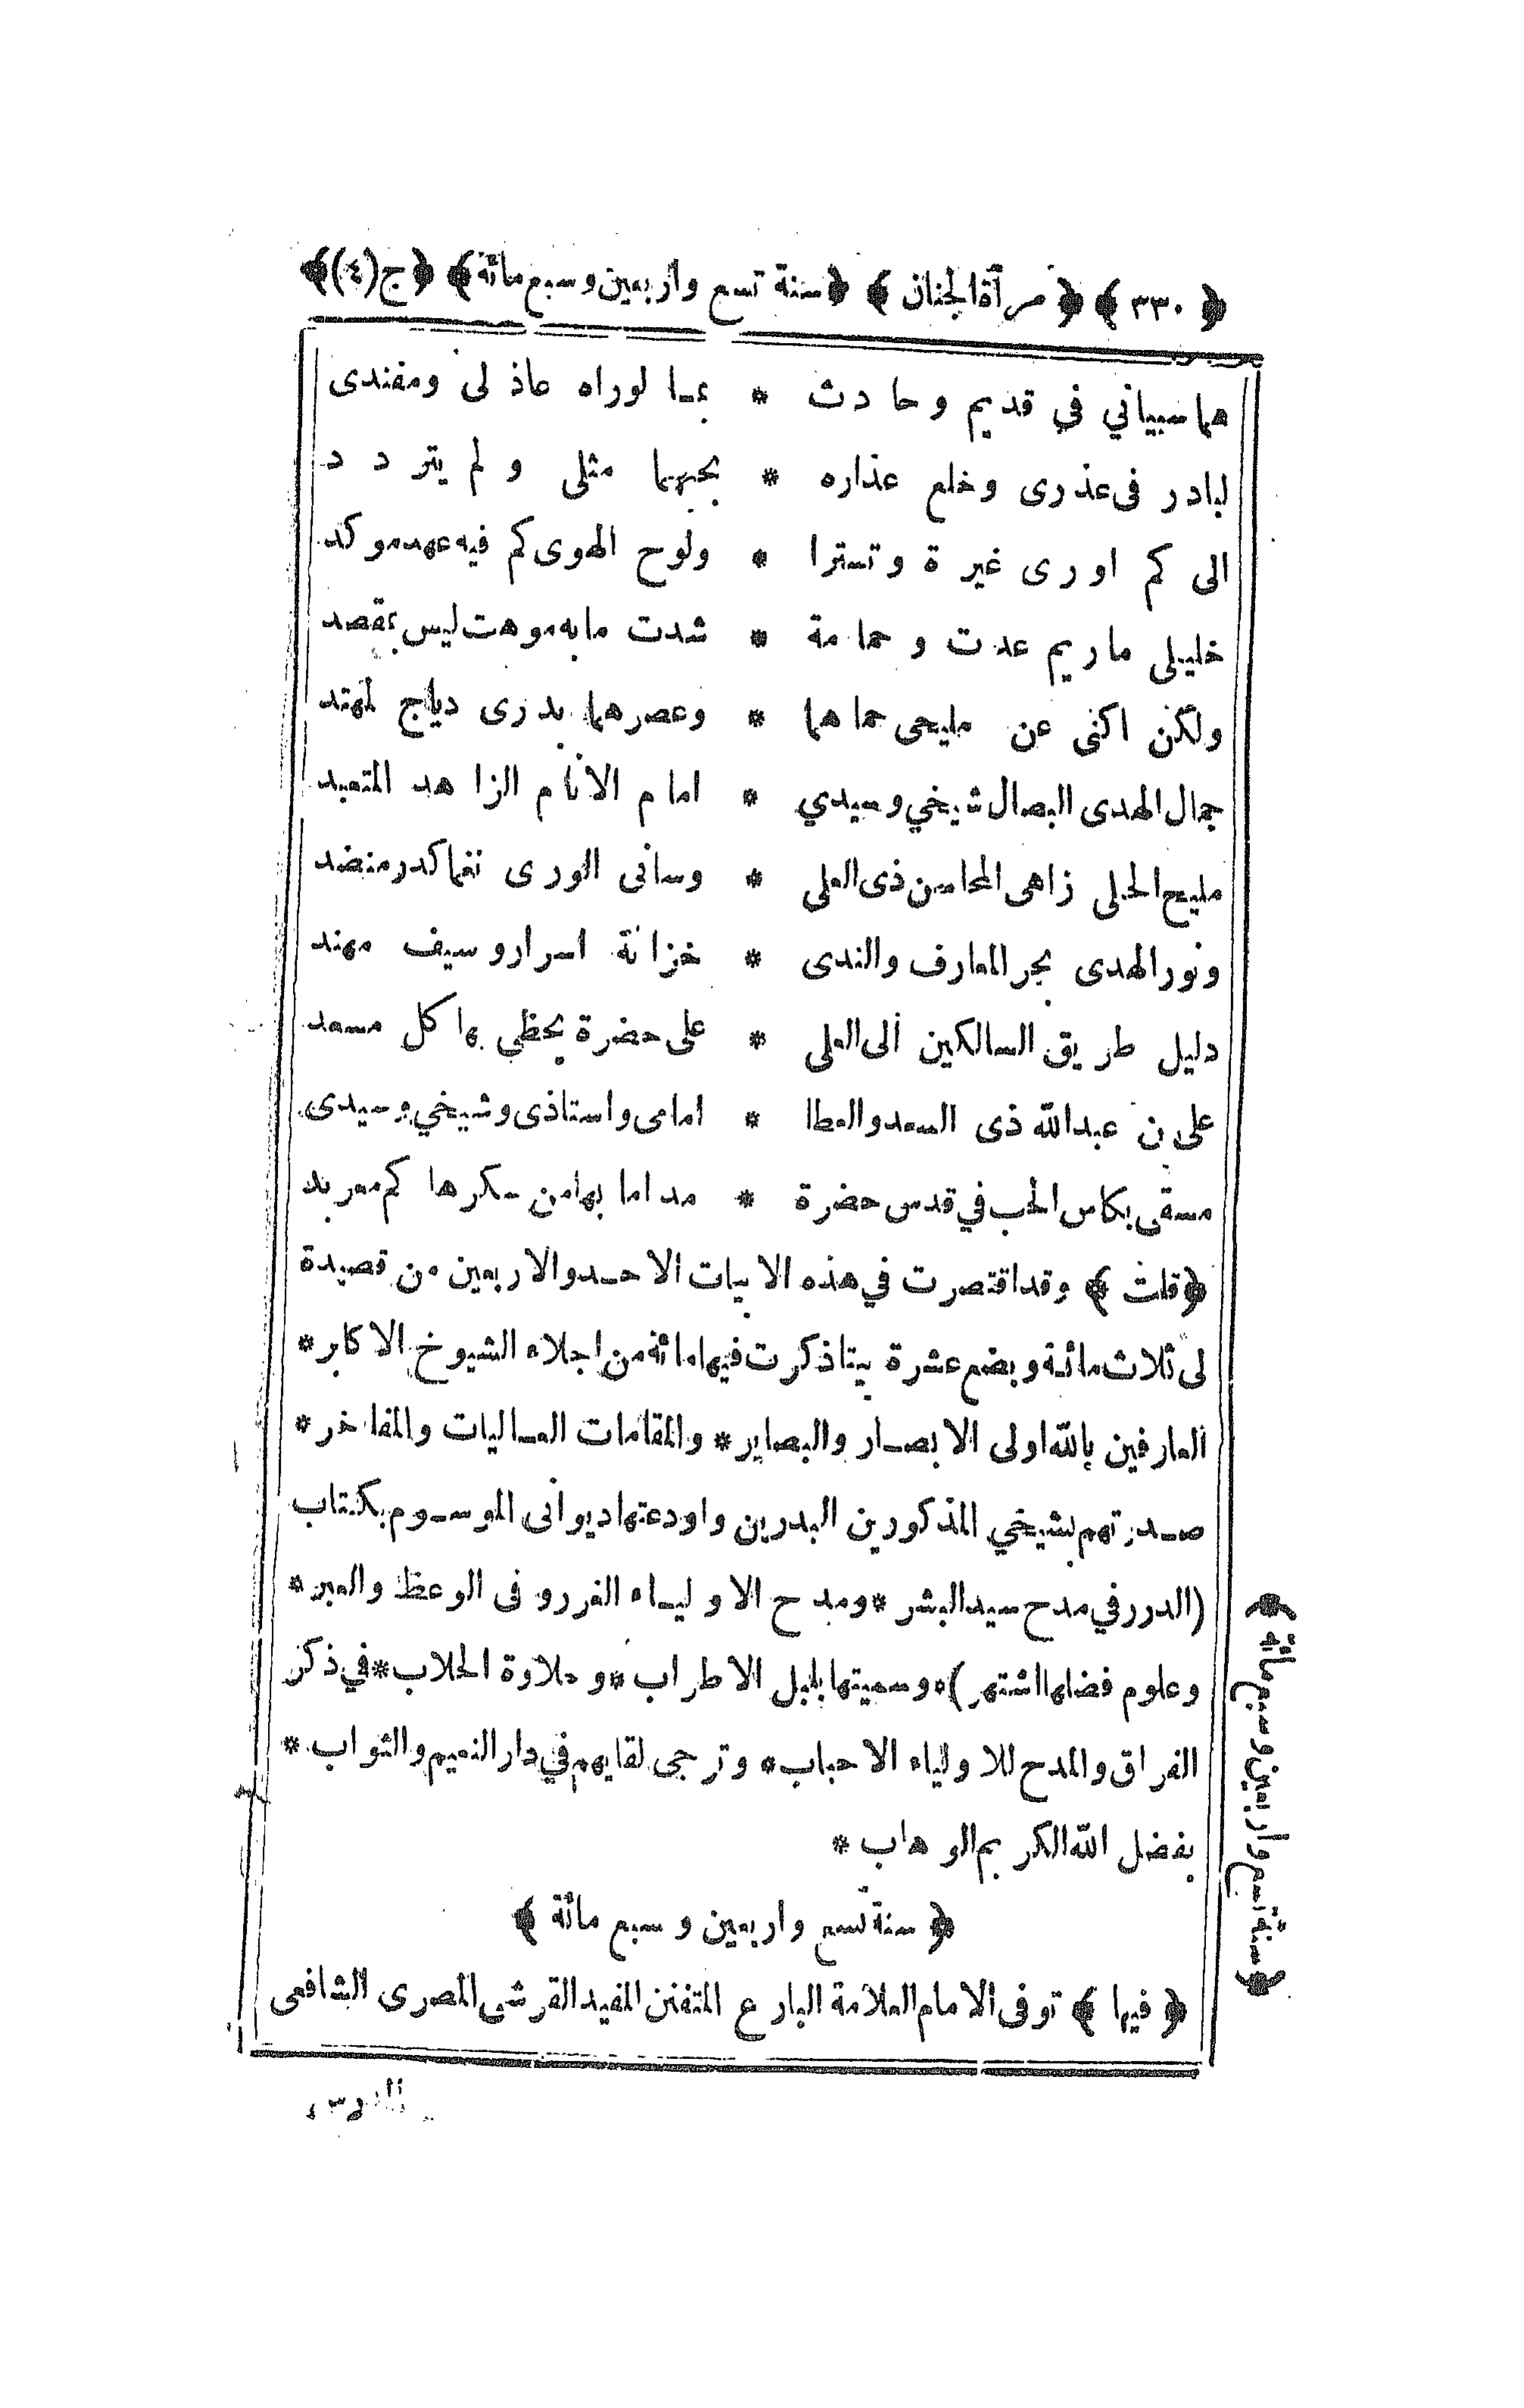 ﴿ ٣٣٠ ﴾ ﴿ مرآة الجنان ﴾ ﴿ سنة تسع واربعين وسبع مائة ﴾ ﴿ ج (٤) ﴾
هما سبياني في قديم وحادث * بما لوراه عاذلى ومفندى
لبادر فى عذرى وخلع عذاره * بحبهما مثلى ولم يتردد
الى كم اورى غيرة وتسترا * ولوح الهوى كم فيه عهد موكد
خليلى ماريم عدت وحمامة * شدت مابه موهت ليس بمقصد
ولكن اكنى عن مليحى حماهما * وعصرهما بدرى دياج لمهتد
جمال الهدى البصال شيخي وسيدي * امام الانام الزاهد المتعبد
مليح الحلى زاهى المحاسن ذى العلى * وسافى الورى نغما كدر منضد
ونور الهدى بحر المعارف والندى * خزانة اسرار وسيف مهند
دليل طريق السالكين الى العلى * على حضرة يحظى بها كل مسعد
على بن عبد الله ذى السعد والعطا * امامى واستاذى وشيخي وسيدى
مسقى بكاس الحب في قدس حضرة * مداما بها من سكرها كم معربد
﴿ قلت ﴾ وقد اقتصرت في هذه الابيات الاحد والاربعين من قصيدة
لى ثلاث مائة وبضع عشرة بيتا ذكرت فيها مائة من اجلاء الشيوخ الاكابر *
العارفين بالله اولى الابصار والبصاير * والمقامات العاليات والمفاخر *
صدرتهم بشيخي المذكورين البدرين واودعتها ديوانى الموسوم بكتاب
(الدرر في مدح سيد البشر * ومدح الاولياء الغرر و فى الوعظ والعبر *
وعلوم فضلها اشتهر) * وسميتها بلبل الاطراب * وحلاوة الحلاب * في ذكر
الفراق والمدح للاولياء الاحباب * وترجى لقايهم في دار النعيم والثواب *
بفضل الله الكريم الوهاب *
﴿ سنة تسع واربعين وسبع مائة ﴾
﴿ فيها ﴾ توفى الامام العلامة البارع المتفنن المفيد القرشى المصرى الشافعى
﴿ سنة تسع واربعين وسبع مائة ﴾